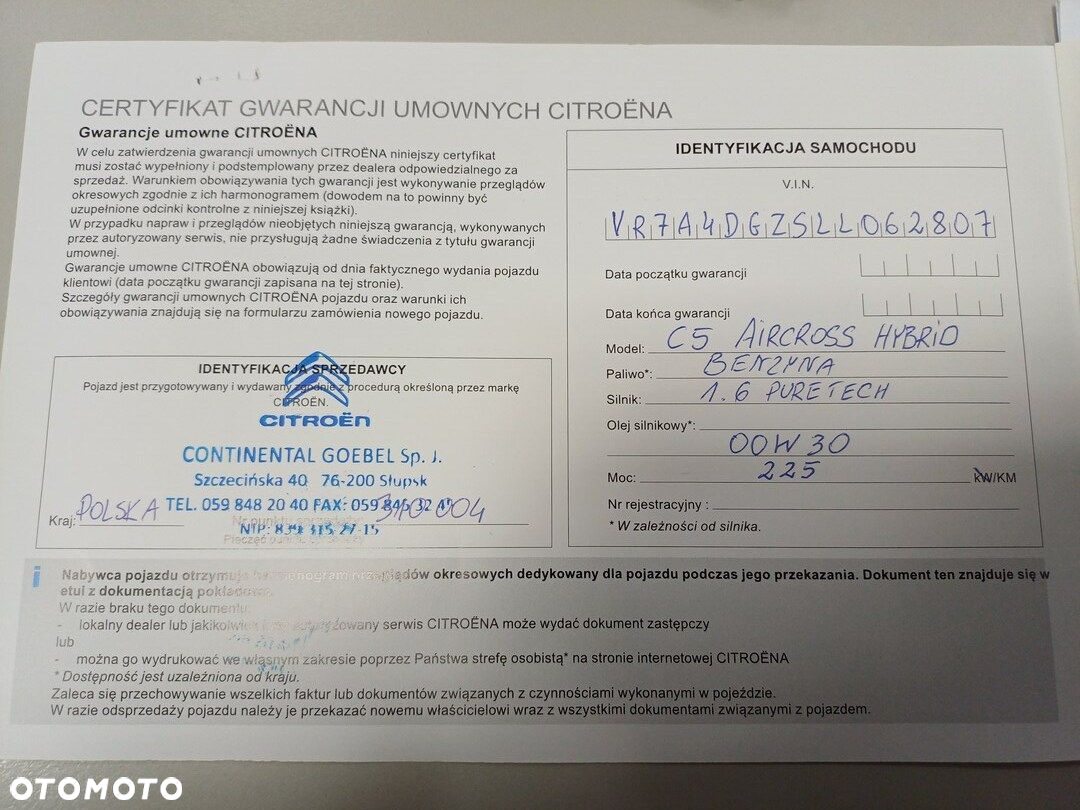 CERTYFIKAT GWARANCJI UMOWNYCH CITROËNA
Gwarancje umowne CITROËNA
W celu zatwierdzenia gwarancji umownych CITROËNA niniejszy certyfikat
musi zostać wypełniony i podstemplowany przez dealera odpowiedzialnego za
sprzedaż. Warunkiem obowiązywania tych gwarancji jest wykonywanie przeglądów
okresowych zgodnie z ich harmonogramem (dowodem na to powinny być
uzupełnione odcinki kontrolne z niniejszej książki).
W przypadku napraw i przeglądów nieobjętych niniejszą gwarancją, wykonywanych
przez autoryzowany serwis, nie przysługują żadne świadczenia z tytułu gwarancji
umownej.
Gwarancje umowne CITROËNA obowiązują od dnia faktycznego wydania pojazdu
klientowi (data początku gwarancji zapisana na tej stronie).
Szczegóły gwarancji umownych CITROËNA pojazdu oraz warunki ich
obowiązywania znajdują się na formularzu zamówienia nowego pojazdu.
IDENTYFIKACJA SPRZEDAWCY
Pojazd jest przygotowywany i wydawany zgodnie z procedurą określoną przez markę
CITROËN.
CITROËN
CONTINENTAL GOEBEL Sp. J.
Szczecińska 40 76-200 Słupsk
TEL. 059 848 20 40 FAX: 059 845 32 4
Kraj: POLSKA
Nr punktu 004
NIP: 839 315 27-15
IDENTYFIKACJA SAMOCHODU
V.I.N.
VR7A4DGZSLL062807
Data początku gwarancji
Data końca gwarancji
Model: C5 AIRCROSS HYBRID
Paliwo*: BENZYNA
Silnik: 1.6 PURETECH
Olej silnikowy*:
00W30
Moc: 225 kW/KM
Nr rejestracyjny :
* W zależności od silnika.
i
Nabywca pojazdu otrzymuje przeglądów okresowych dedykowany dla pojazdu podczas jego przekazania. Dokument ten znajduje się w
etui z dokumentacją pokładową.
W razie braku tego dokumentu:
- lokalny dealer lub jakikolwiek autoryzowany serwis CITROËNA może wydać dokument zastępczy
lub
- można go wydrukować we własnym zakresie poprzez Państwa strefę osobistą* na stronie internetowej CITROËNA
* Dostępność jest uzależniona od kraju.
Zaleca się przechowywanie wszelkich faktur lub dokumentów związanych z czynnościami wykonanymi w pojeździe.
W razie odsprzedaży pojazdu należy je przekazać nowemu właścicielowi wraz z wszystkimi dokumentami związanymi z pojazdem.
OTOMOTO